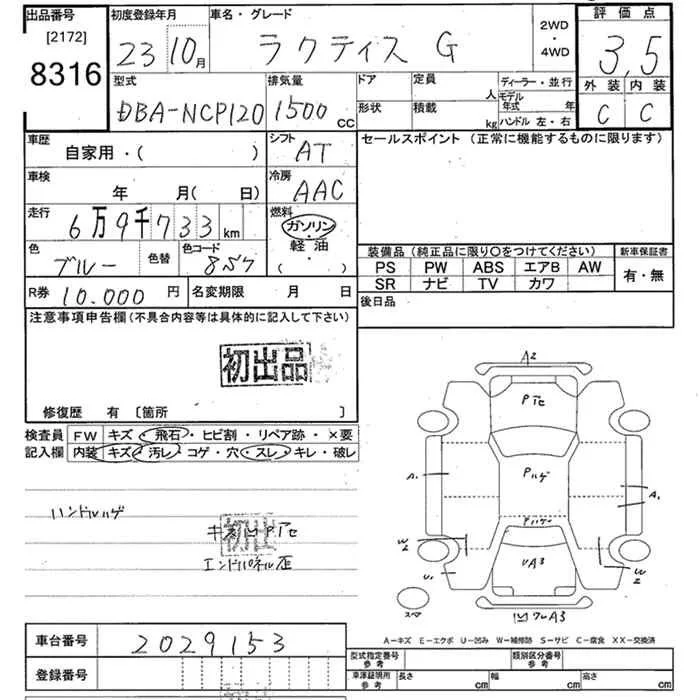 出品番号 初度登録年月 車名・グレード 2WD ・ 4WD 評価点
[2172]
8316
23 10月 ラクティス G 3,5
型式 排気量 ドア 定員 人 ディーラー・並行
モデル年式 年
外装 内装
DBA-NCP120 1500 cc 形状 積載 kg ハンドル 左・右 C C
車歴 シフト セールスポイント (正常に機能するものに限ります)
自家用・( ) AT
車検 冷房
年 月( 日) AAC
走行 燃料
6万9千733km ガソリン
・
軽油
・
( )
色 色替 色コード
ブルー 8S7
装備品 (純正品に限り○をつけてください) 新車保証書
PS PW ABS エアB AW 有・無
SR ナビ TV カワ
R券 10.000 円 名変期限 月 日
後日品
注意事項申告欄 (不具合内容等は具体的に記入して下さい)
初出品
修復歴 有 〔箇所 〕
検査員 FW キズ・飛石・ヒビ割・リペア跡・×要
記入欄 内装 キズ・汚レ・コゲ・穴・スレ・キレ・破レ
ハンドルハゲ
初出
エンドパネル歪
A2
Pハゲ
A1
A1
Pハゲ
W2
W2
U1
UA3
スペア
A3
A-キズ E-エクボ U-凹み W-補修跡 S-サビ C-腐食 XX-交換済
車台番号 2029153
登録番号
型式指定番号 参考 類別区分番号 参考
車庫証明用 参考 長さ cm 幅 cm 高さ cm